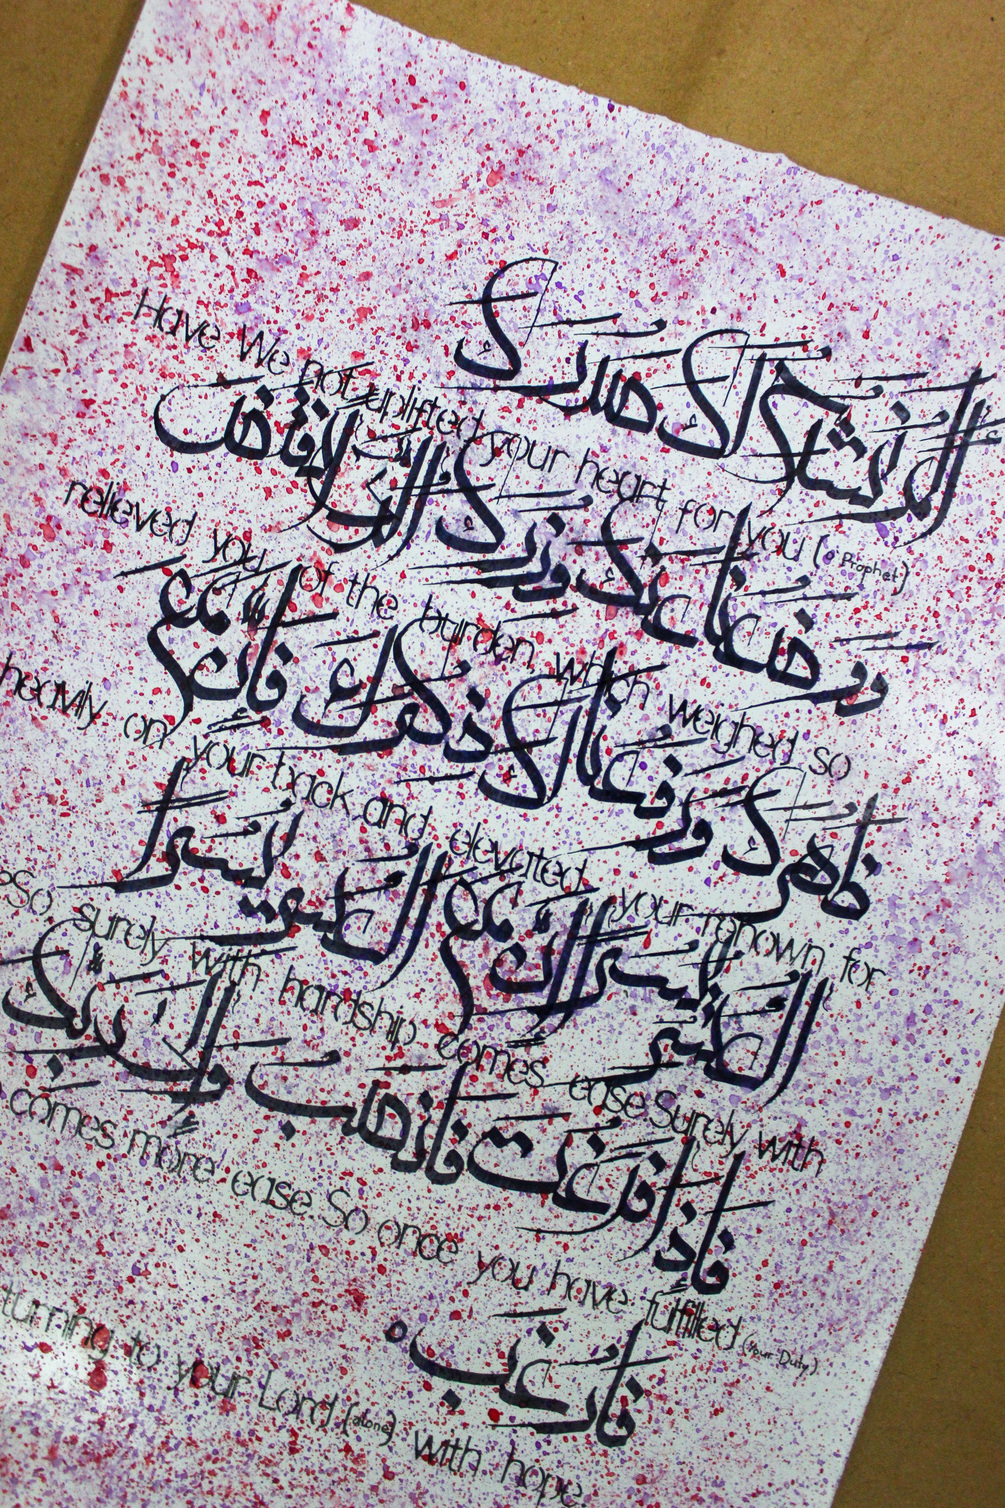 اَلَمْ نَشْرَحْ لَكَ صَدْرَكَ
Have We not uplifted your heart for you (O Prophet)
وَوَضَعْنَا عَنْكَ وِزْرَكَ الَّذِىْ اَنْقَضَ
relieved you of the burden which weighed so
ظَهْرَكَ وَرَفَعْنَا لَكَ ذِكْرَكَ فَاِنَّ مَعَ
heavily on your back and elevated your renown for
الْعُسْرِ يُسْرًا اِنَّ مَعَ الْعُسْرِ يُسْرًا
So surely with hardship comes ease. Surely with
فَاِذَا فَرَغْتَ فَانْصَبْ وَاِلٰى رَبِّكَ
comes more ease. So once you have fulfilled (Your Duty)
فَارْغَبْ
turning to your Lord (alone) with hope